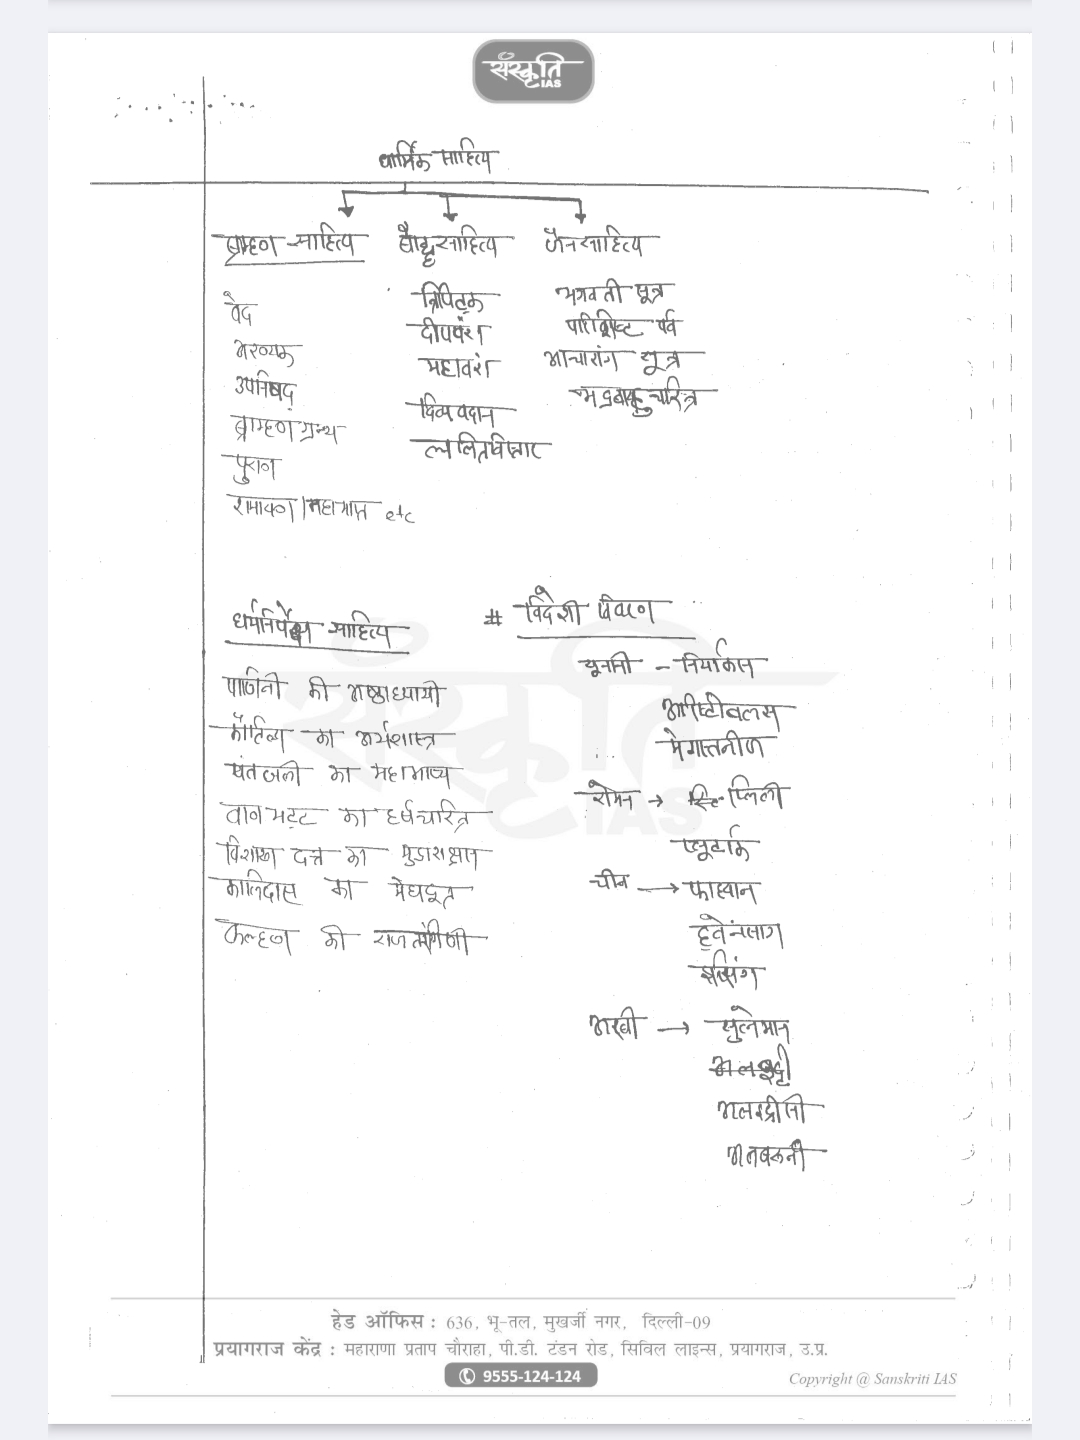 संस्कृति
IAS
धार्मिक साहित्य
ब्राम्हण साहित्य
वेद
अरण्यक
उपनिषद्
ब्राम्हण ग्रन्थ
पुराण
रामायण / महाभारत etc
बौद्ध साहित्य
त्रिपिटक
दीपवंश
महावंश
दिव्यवदान
ललितविस्तार
जैन साहित्य
भगवती सूत्र
परिशिष्ट पर्व
आचारांग सूत्र
भद्रबाहु चरित्र
धर्मनिर्पेक्ष साहित्य
पाणिनी की अष्टाध्यायी
कौटिल्य का अर्थशास्त्र
पंतजली का महाभाष्य
वाणभट्ट का हर्षचरित्र
विशाखा दत्त का मुद्राराक्षस
कालिदास का मेघदूत
कल्हण की राजतरंगिणी
# विदेशी विवरण
यूनानी - निर्याकस
अरिष्टोवलस
मेगास्तनीज
रोमन → प्लिली
प्लूटार्क
चीन → फाह्यान
ह्वेनसांग
इत्सिंग
अरबी → सुलेमान
अलइद्रीसी
अलबरूनी
संस्कृति
IAS
हेड ऑफिस : 636, भू-तल, मुखर्जी नगर, दिल्ली-09
प्रयागराज केंद्र : महाराणा प्रताप चौराहा, पी.डी. टंडन रोड, सिविल लाइन्स, प्रयागराज, उ.प्र.
9555-124-124
Copyright @ Sanskriti IAS